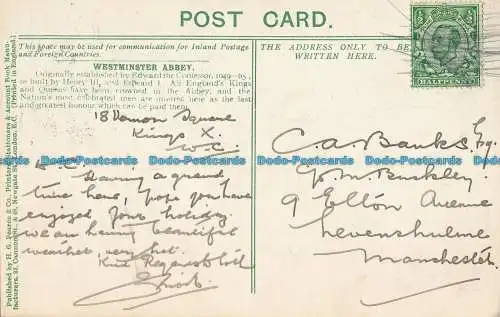 POST CARD.
This space may be used for communication for Inland Postage
and Foreign Countries.
THE ADDRESS ONLY TO BE
WRITTEN HERE.
HALFPENNY
WESTMINSTER ABBEY.
Originally established by Edward the Confessor, 1049-65,
re-built by Henry III, and Edward I. All England's Kings
and Queens have been crowned in the Abbey, and the
Nation's most celebrated men are interred here as the last
and greatest honour which can be paid them.
18 Vernon Square
Kings X.
W.C.
Having a grand
time here, hope you have
enjoyed your holiday
we are having beautiful
weather, very hot.
Kind Regards to all
C. A. Banks, Esq.
9 Elton Avenue
Levenshulme
Manchester.
Published by H. G. Pearce & Co., Printers, Stationers & Account Book Manu-
facturers, London, E.C. (Printed in England.)
Dodo-Postcards Dodo-Postcards Dodo-Postcards Dodo-Postcards Dodo-Postcards